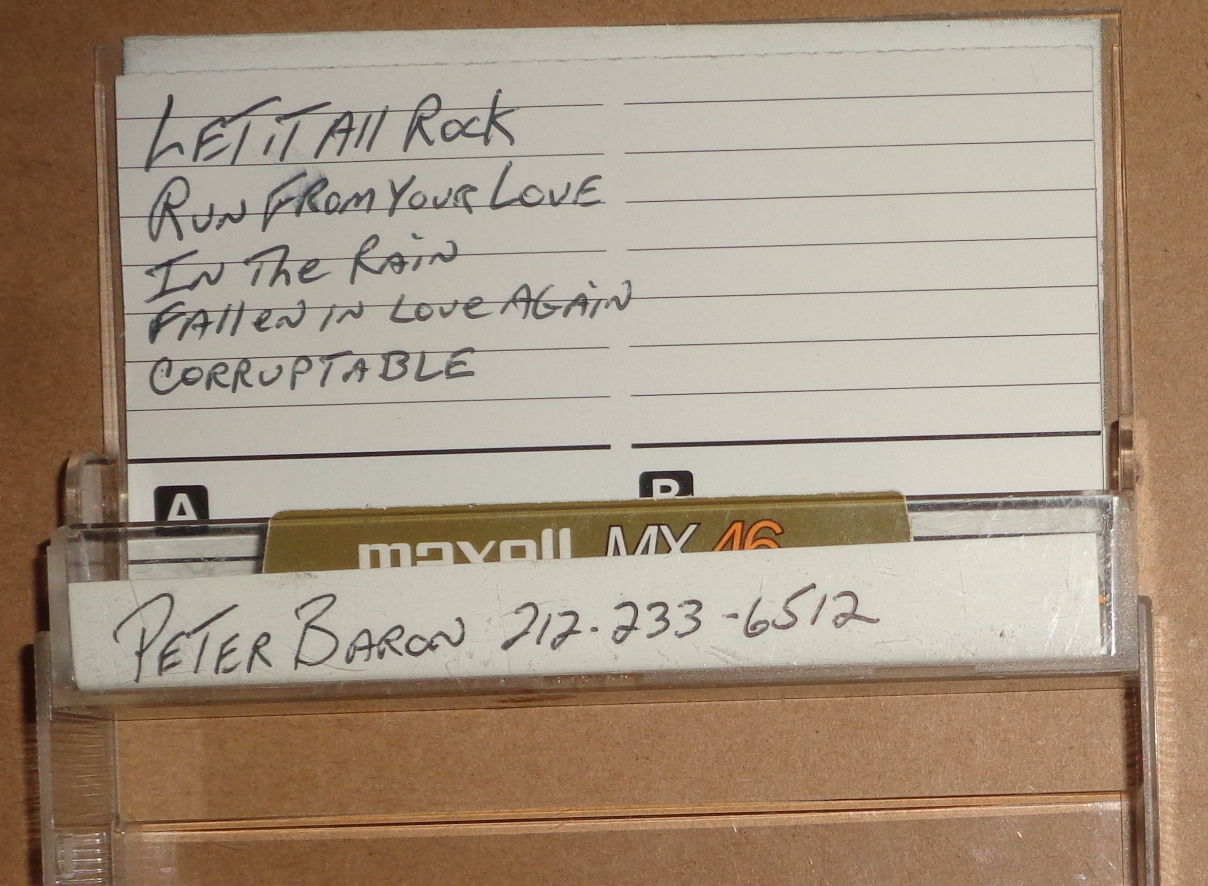 LET iT All Rock
RUN FROM YOUR LOVE
IN The RAiN
FAllen IN Love AGAiN
CORRUPTABLE
A B
maxell MX 46
PETER BARON 212-233-6512